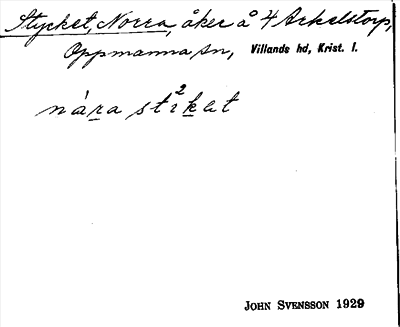 Stycket, Norra, åker å 4 Arkelstorp,
Oppmanna sn, Villands hd, Krist. l.
nàra sti²kat
JOHN SVENSSON 1929